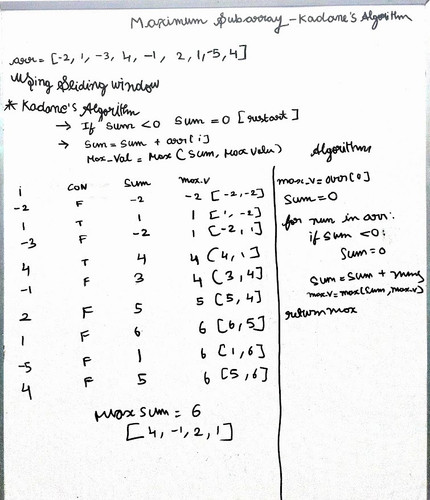 Maximum Subarray - Kadane's Algorithm
arr = [-2, 1, -3, 4, -1, 2, 1, -5, 4]
Using Sliding window
* Kadane's Algorithm
→ If Sum < 0 Sum = 0 [restart]
→ Sum = Sum + arr[i]
Max_Val = Max (Sum, Max Value)
i CON Sum max.v
-2 F -2 -2 [-2, -2]
1 T 1 1 [1, -2]
-3 F -2 1 [-2, 1]
4 T 4 4 [4, 1]
-1 F 3 4 [3, 4]
2 F 5 5 [5, 4]
1 F 6 6 [6, 5]
-5 F 1 6 [1, 6]
4 F 5 6 [5, 6]
Max Sum = 6
[4, -1, 2, 1]
Algorithm
max_v = arr[0]
Sum = 0
for num in arr:
if Sum < 0:
Sum = 0
Sum = Sum + nums
max.v = max(Sum, max.v)
return max